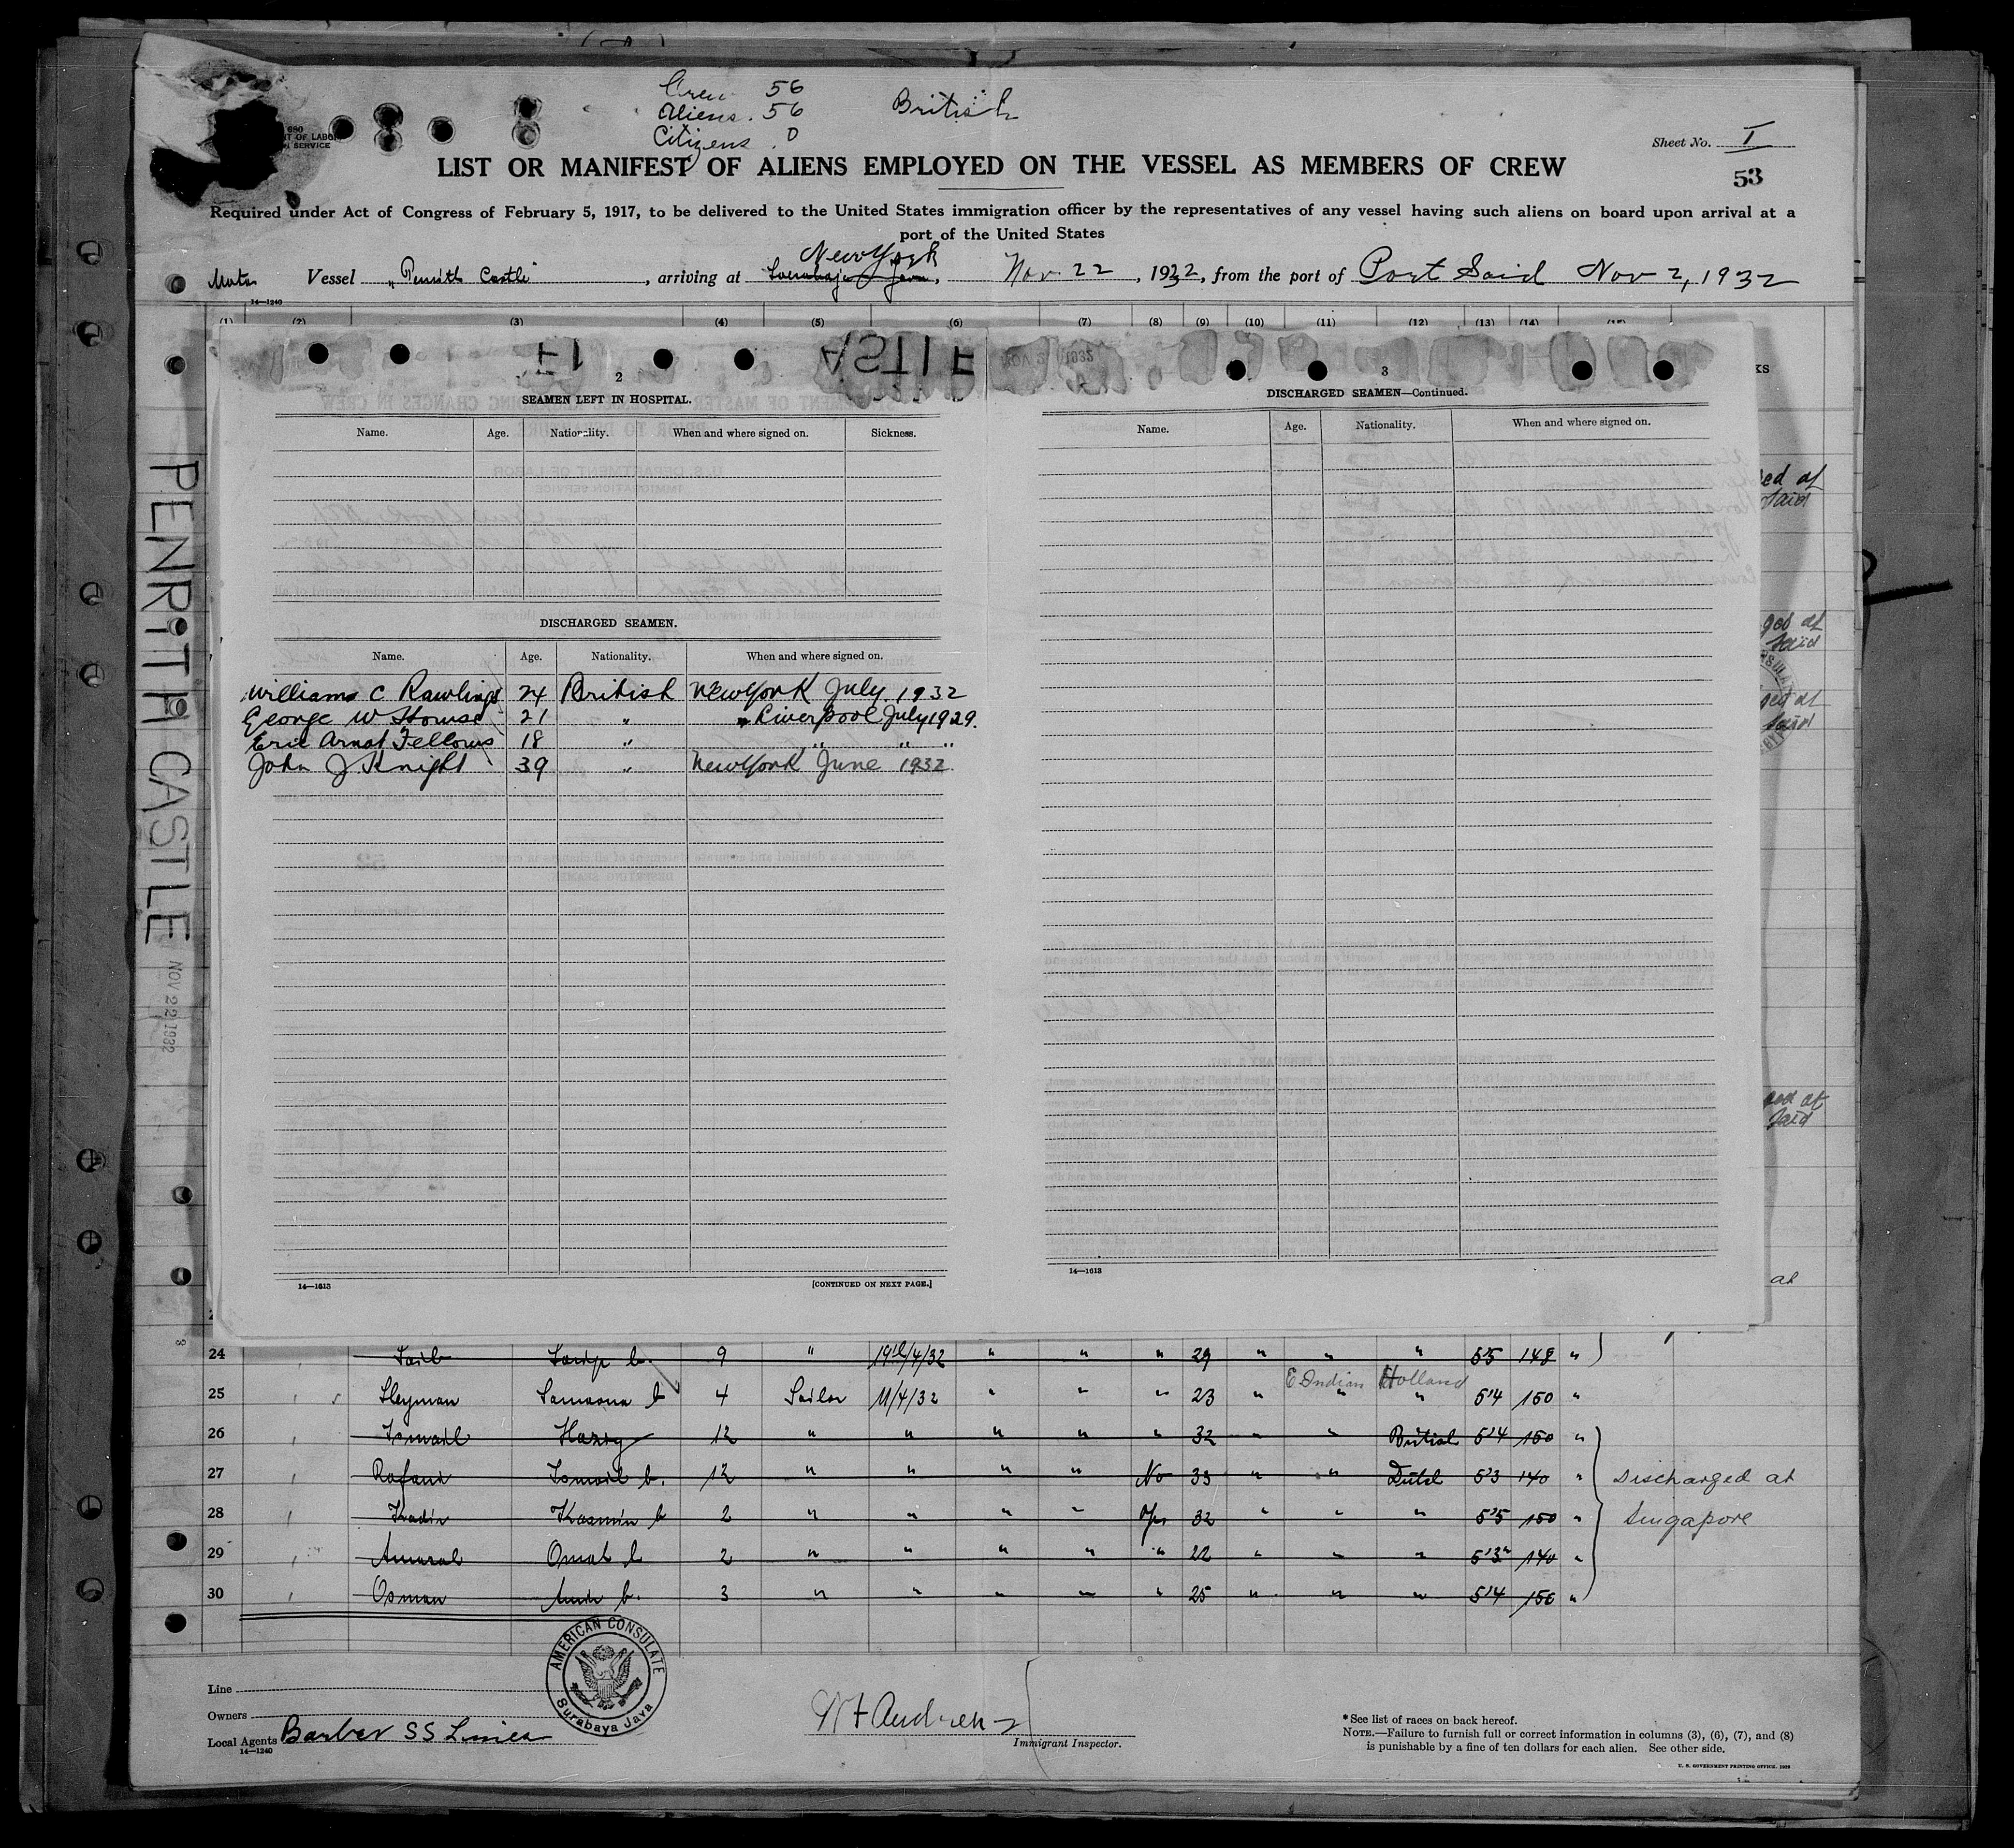 Crew 56
Aliens. 56
Citizens. 0
British
680
T OF LABOR
SERVICE
Sheet No. I
53
LIST OR MANIFEST OF ALIENS EMPLOYED ON THE VESSEL AS MEMBERS OF CREW
Required under Act of Congress of February 5, 1917, to be delivered to the United States immigration officer by the representatives of any vessel having such aliens on board upon arrival at a
port of the United States
New York
Motor Vessel "Penrith Castle", arriving at Sourabaja Java, Nov. 22, 1932, from the port of Port Said Nov 2, 1932
14—1240
(1) (2) (3) (4) (5) (6) (7) (8) (9) (10) (11) (12) (13) (14) (15)
PENRITH CASTLE NOV 22 1932
2
SEAMEN LEFT IN HOSPITAL.
Name. Age. Nationality. When and where signed on. Sickness.
DISCHARGED SEAMEN.
Name. Age. Nationality. When and where signed on.
Williams C Rawlings 24 British New York July 1932
George W Howse 21 " Liverpool July 1929.
Eric Arnot Fellows 18 " " " "
John J Knight 39 " New York June 1932
14—1613
[CONTINUED ON NEXT PAGE.]
3
DISCHARGED SEAMEN—Continued.
Name. Age. Nationality. When and where signed on.
14—1613
KS
ged at
Said
ged at
Said
ged at
Said
ged at
Said
at
24 Saib Sarip b. 9 " 19/4/32 " " " 29 " " " 5'5 148 "
E Indian Holland
25 Sleyman Samaona b 4 Sailor 11/4/32 " " " 23 " " " 5'4 150 "
26 Ismail Haziy 12 " " " " " 32 " " British 5'4 150 "
27 Rafani Ismail b. 12 " " " " No 33 " " Dutch 5'3 140 " Discharged at
28 Kadir Kasmin b 2 " " " " Yes 32 " " " 5'5 150 " Singapore
29 Amaral Omat b 2 " " " " " 22 " " " 5'3" 140 "
30 Osman Amir b. 3 " " " " " 25 " " " 5'4 150 "
AMERICAN CONSULATE
Surabaya Java
Line
Owners
Local Agents Barber SS Lines
14—1240
Immigrant Inspector.
*See list of races on back hereof.
NOTE.—Failure to furnish full or correct information in columns (3), (6), (7), and (8)
is punishable by a fine of ten dollars for each alien. See other side.
U. S. GOVERNMENT PRINTING OFFICE. 1929